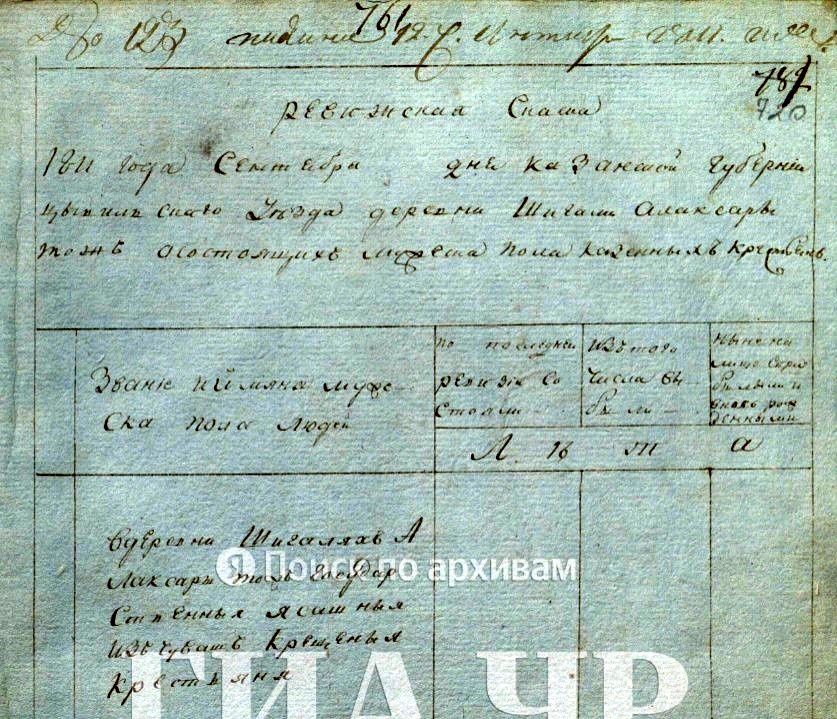 До 123 подана 12 С. Октября 1811. года
761
787
720
Ревизская Сказка
1811 года Сентября дня казанской губернии
цывильскаго Уезда деревни Шигали Алаксары
тожъ осостоящихъ мужеска пола казенныхъ крестьянъ.
Звание и имяна муже-
ска пола людей
по последней
ревизiи со
стояли
Изъ того
числа вы
были
Ныне на
лицо с при
былыми и
вновь рож
денными
Лѣта
Вдеревни Шигаляхъ А
лаксары тожъ Государ
ственныя ясашныя
изъ чувашъ крещеныя
крестьяня
Поиск по архивам
ГИА ЧР